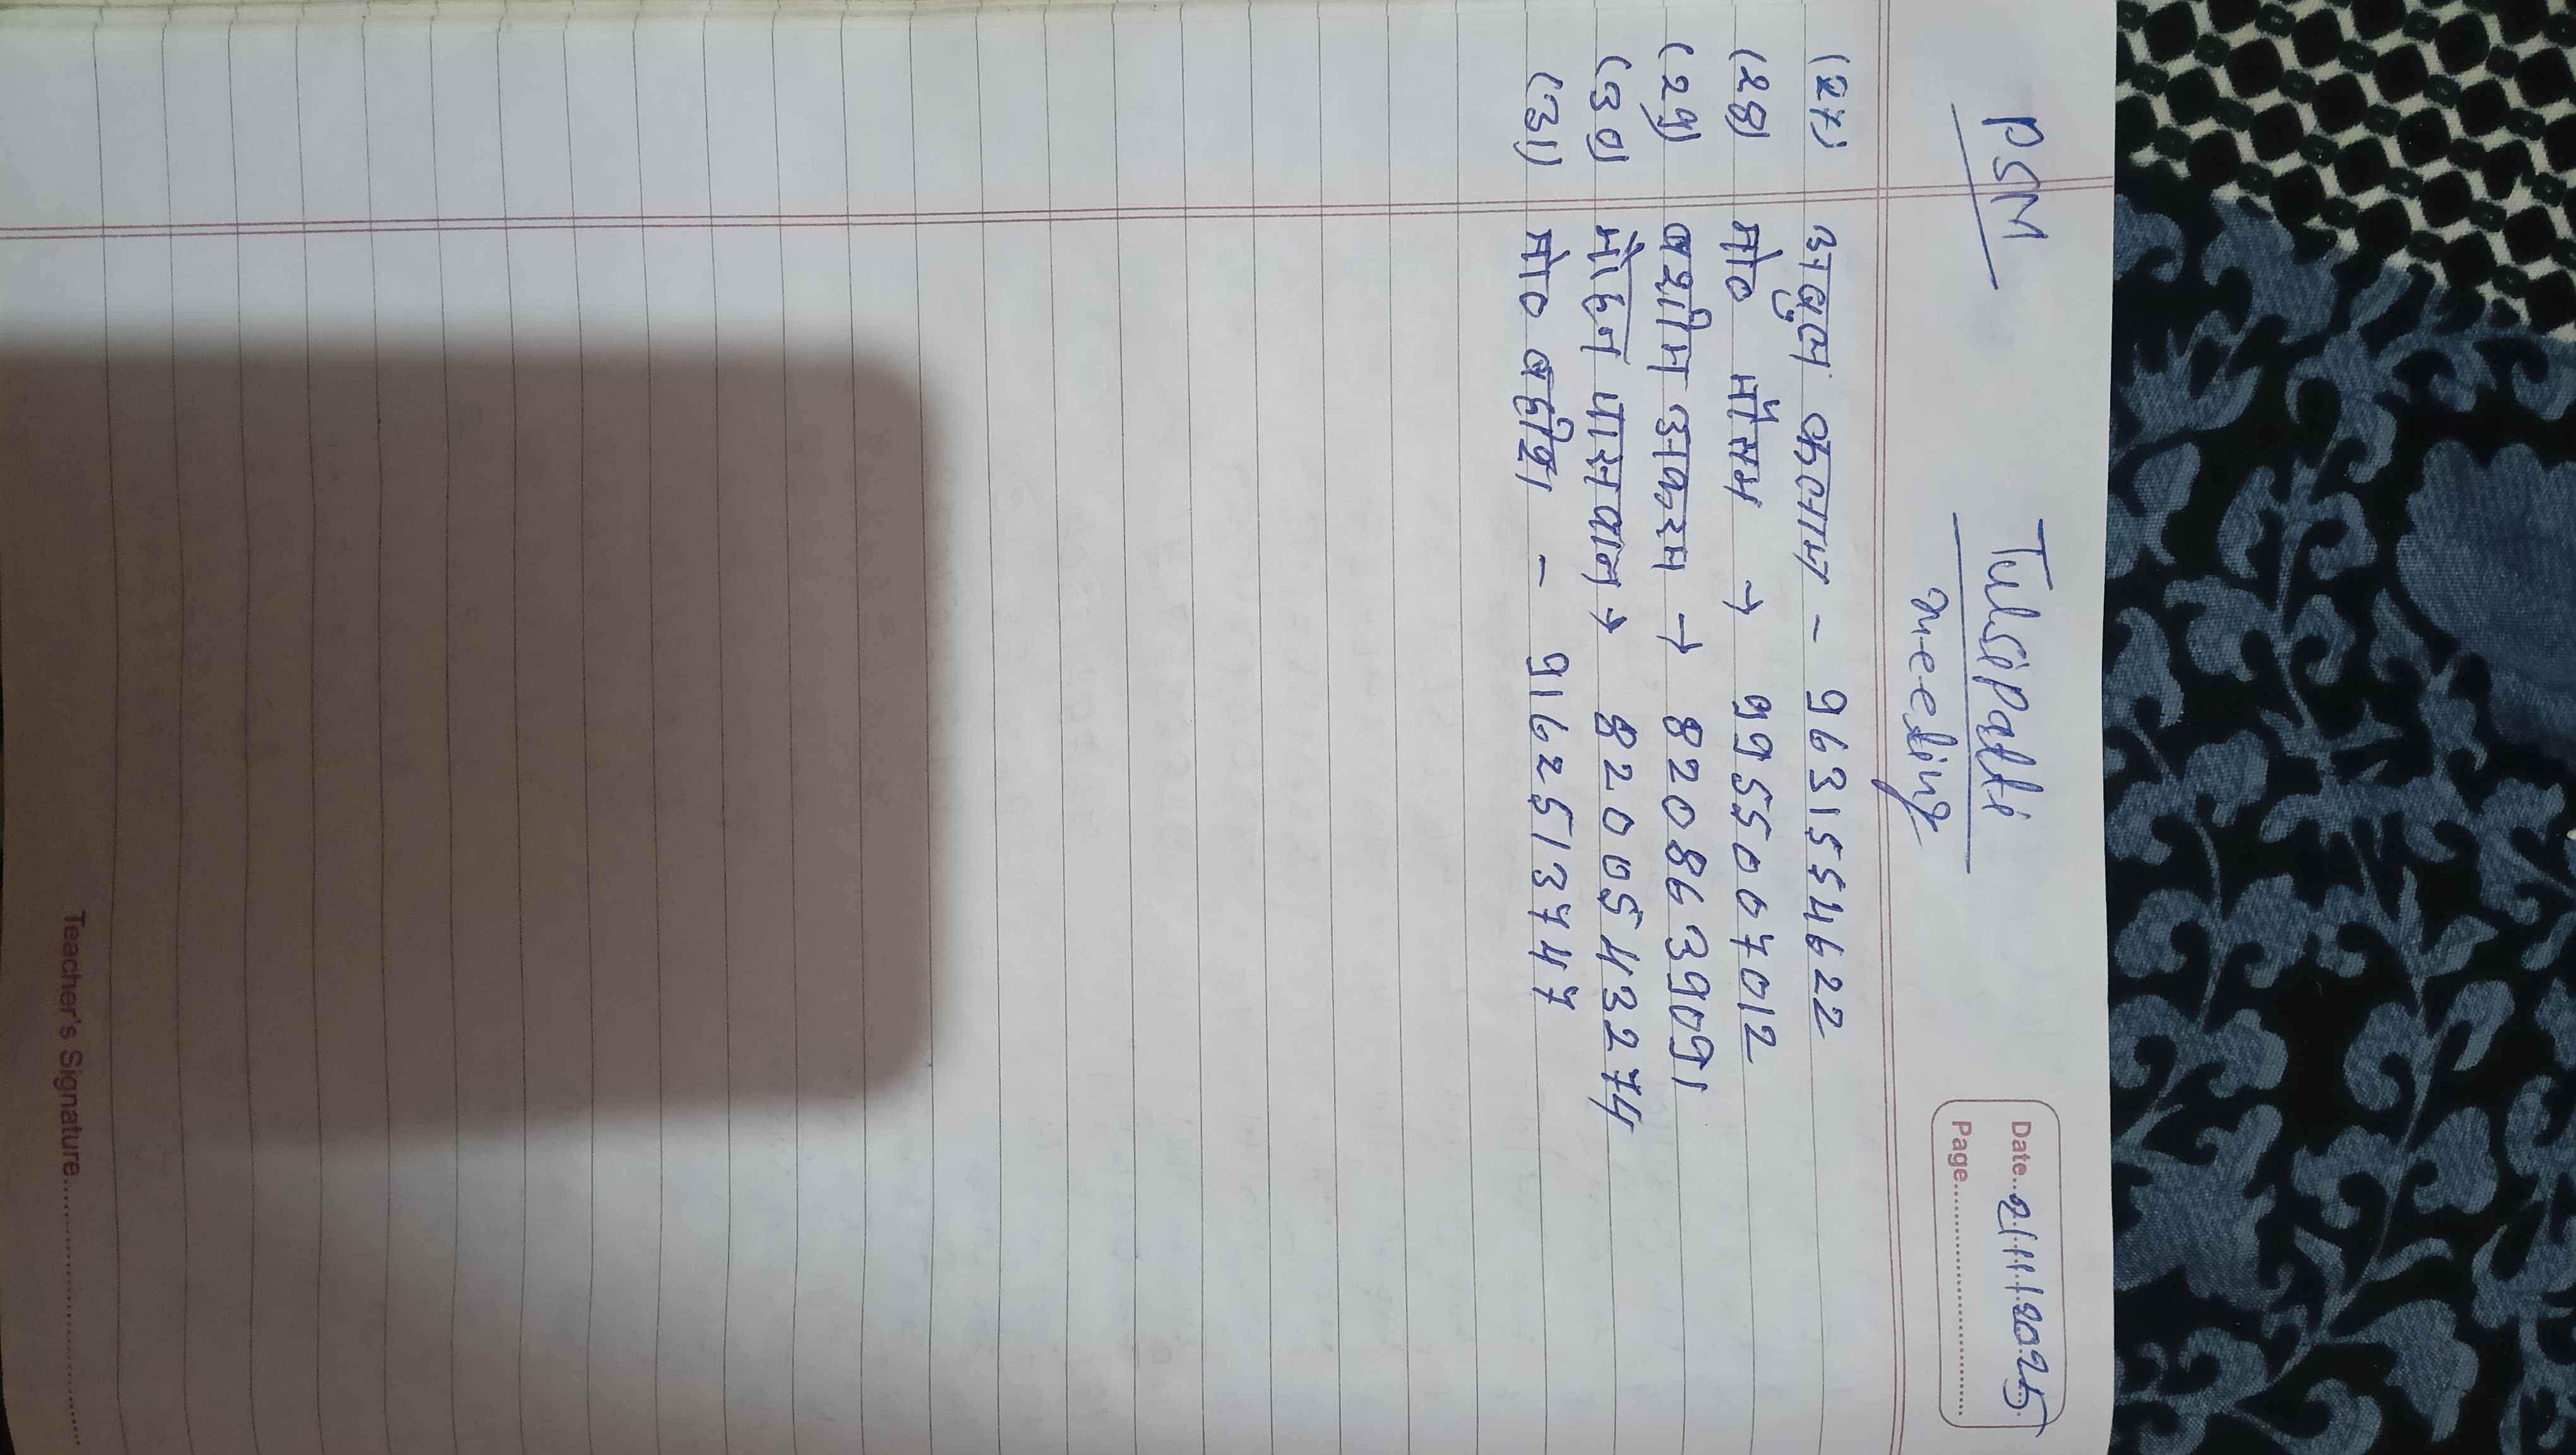 PSM
Tulsipatti
meeting
Date 21/11/2025
Page
(27) अबुल कलाम - 9631554622
(28) मो० मौसम → 9955067012
(29) वशीम अकरम → 8208639091
(30) मोहन पासवान → 8200543274
(31) मो० वहीद - 9162513747
Teacher's Signature